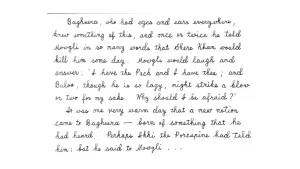 Bagheera, who had eyes and ears everywhere,
knew something of this, and once or twice he told
Mowgli in so many words that Shere Khan would
kill him some day. Mowgli would laugh and
answer: 'I have the Pack and I have thee; and
Baloo, though he is so lazy, might strike a blow
or two for my sake. Why should I be afraid?'
It was one very warm day that a new notion
came to Bagheera — born of something that he
had heard. Perhaps Ikki the Porcupine had told
him; but he said to Mowgli ...